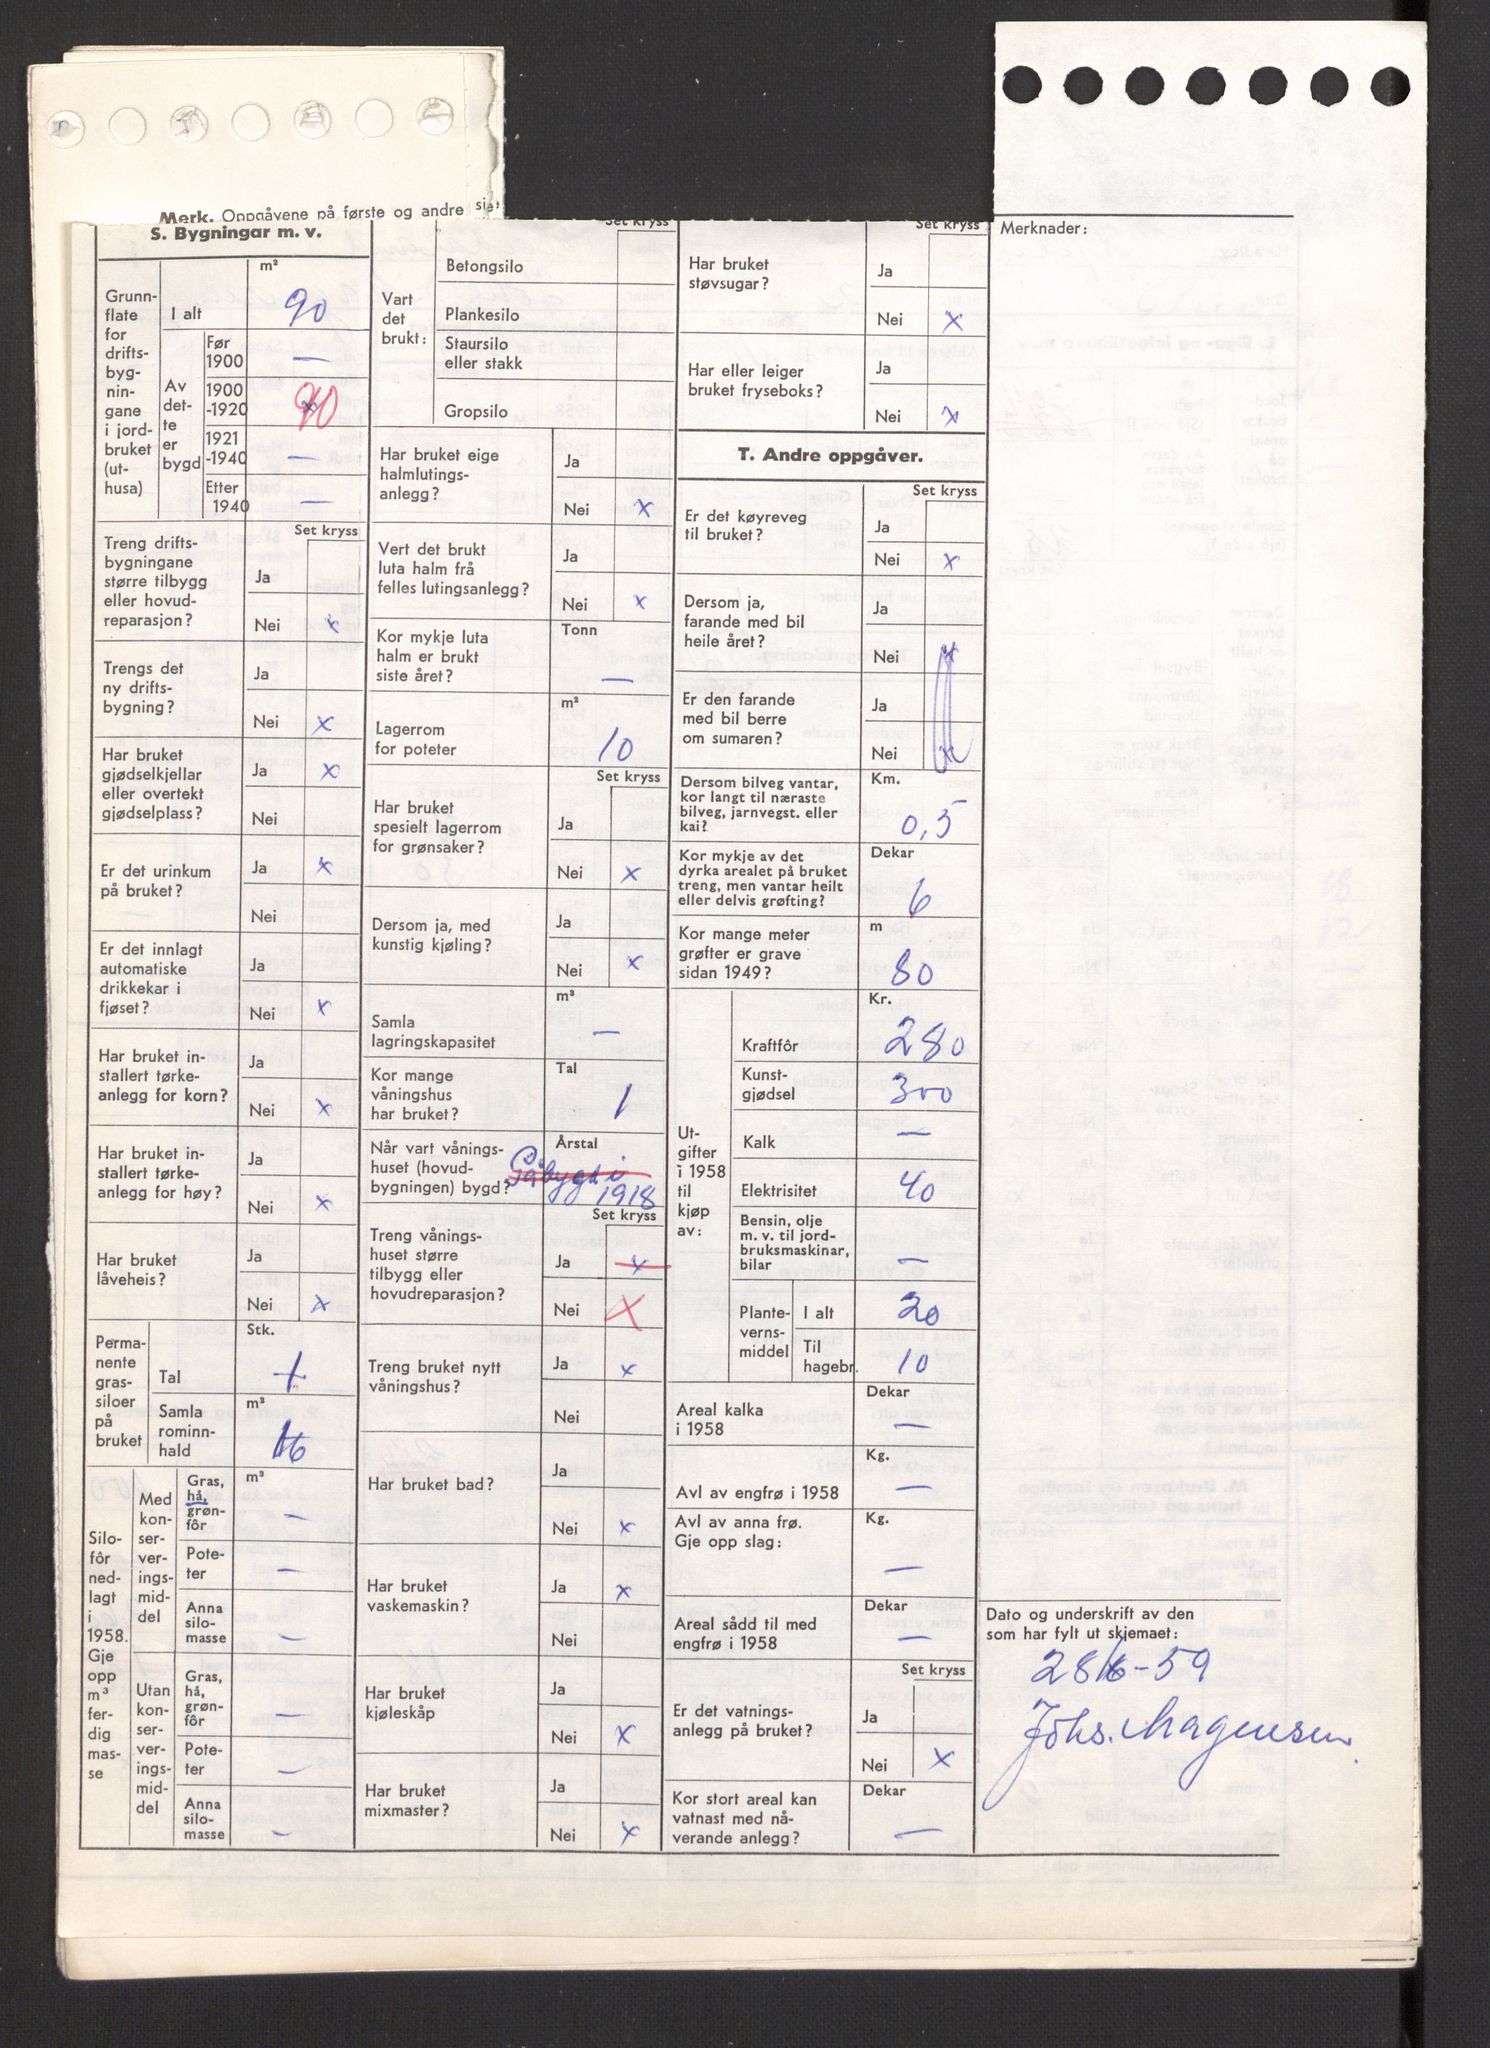 Merk. Oppgåvene på første og andre sie
S. Bygningar m. v.
Grunn-
flate
for
drifts-
byg-
nin-
gane
i jord-
bruket
(ut-
husa)
m²
I alt 90
Av
det-
te
er
bygd
Før
1900 —
1900
-1920 90
1921
-1940 —
Etter
1940 —
Set kryss
Treng drifts-
bygningane
større tilbygg
eller hovud-
reparasjon?
Ja
Nei x
Trengs det
ny drifts-
bygning?
Ja
Nei x
Har bruket
gjødselkjellar
eller overtekt
gjødselplass?
Ja x
Nei
Er det urinkum
på bruket?
Ja x
Nei
Er det innlagt
automatiske
drikkekar i
fjøset?
Ja
Nei x
Har bruket in-
stallert tørke-
anlegg for korn?
Ja
Nei x
Har bruket in-
stallert tørke-
anlegg for høy?
Ja
Nei x
Har bruket
låveheis?
Ja
Nei x
Perma-
nente
gras-
siloer
på
bruket
Stk.
Tal
m³
Samla
rominn-
hald 16
Silo-
fôr
ned-
lagt
i
1958.
Gje
opp
m³
fer-
dig
mas-
se
Med
kon-
ser-
ver-
ings-
mid-
del
m³
Gras,
hå,
grøn-
fôr —
Pote-
ter —
Anna
silo-
masse —
Utan
kon-
ser-
ver-
ings-
mid-
del
Gras,
hå,
grøn-
fôr —
Pote-
ter —
Anna
silo-
masse —
Set kryss
Vart
det
brukt:
Betongsilo
Plankesilo
Staursilo
eller stakk
Gropsilo
Har bruket eige
halmlutings-
anlegg?
Ja
Nei x
Vert det brukt
luta halm frå
felles lutingsanlegg?
Ja
Nei x
Kor mykje luta
halm er brukt
siste året?
Tonn
—
Lagerrom
for poteter
m²
10
Set kryss
Har bruket
spesielt lagerrom
for grønsaker?
Ja
Nei x
Dersom ja, med
kunstig kjøling?
Ja
Nei x
Samla
lagringskapasitet
m³
—
Kor mange
våningshus
har bruket?
Tal
1
Når vart vånings-
huset (hovud-
bygningen) bygd?
Årstal
Påbygd i
1918
Set kryss
Treng vånings-
huset større
tilbygg eller
hovudreparasjon?
Ja x
Nei X
Treng bruket nytt
våningshus?
Ja x
Nei
Har bruket bad?
Ja
Nei x
Har bruket
vaskemaskin?
Ja x
Nei
Har bruket
kjøleskåp
Ja
Nei x
Har bruket
mixmaster?
Ja
Nei x
Set kryss
Har bruket
støvsugar?
Ja
Nei x
Har eller leiger
bruket fryseboks?
Ja
Nei x
T. Andre oppgåver.
Set kryss
Er det køyreveg
til bruket?
Ja
Nei x
Dersom ja,
farande med bil
heile året?
Ja
Nei x
Er den farande
med bil berre
om sumaren?
Ja
Nei x
Dersom bilveg vantar,
kor langt til næraste
bilveg, jarnvegst. eller
kai?
Km.
0,5
Kor mykje av det
dyrka arealet på bruket
treng, men vantar heilt
eller delvis grøfting?
Dekar
6
Kor mange meter
grøfter er grave
sidan 1949?
m
80
Ut-
gifter
i 1958
til
kjøp
av:
Kr.
Kraftfôr 280
Kunst-
gjødsel 300
Kalk —
Elektrisitet 40
Bensin, olje
m. v. til jord-
bruksmaskinar,
bilar —
Plante-
verns-
middel
I alt 20
Til
hagebr. 10
Areal kalka
i 1958
Dekar
—
Avl av engfrø i 1958
Kg.
—
Avl av anna frø.
Gje opp slag:
Kg.
—
Areal sådd til med
engfrø i 1958
Dekar
—
Set kryss
Er det vatnings-
anlegg på bruket?
Ja
Nei x
Kor stort areal kan
vatnast med nå-
verande anlegg?
Dekar
—
Merknader:
Dato og underskrift av den
som har fylt ut skjemaet:
28/6-59
Johs. Magensen